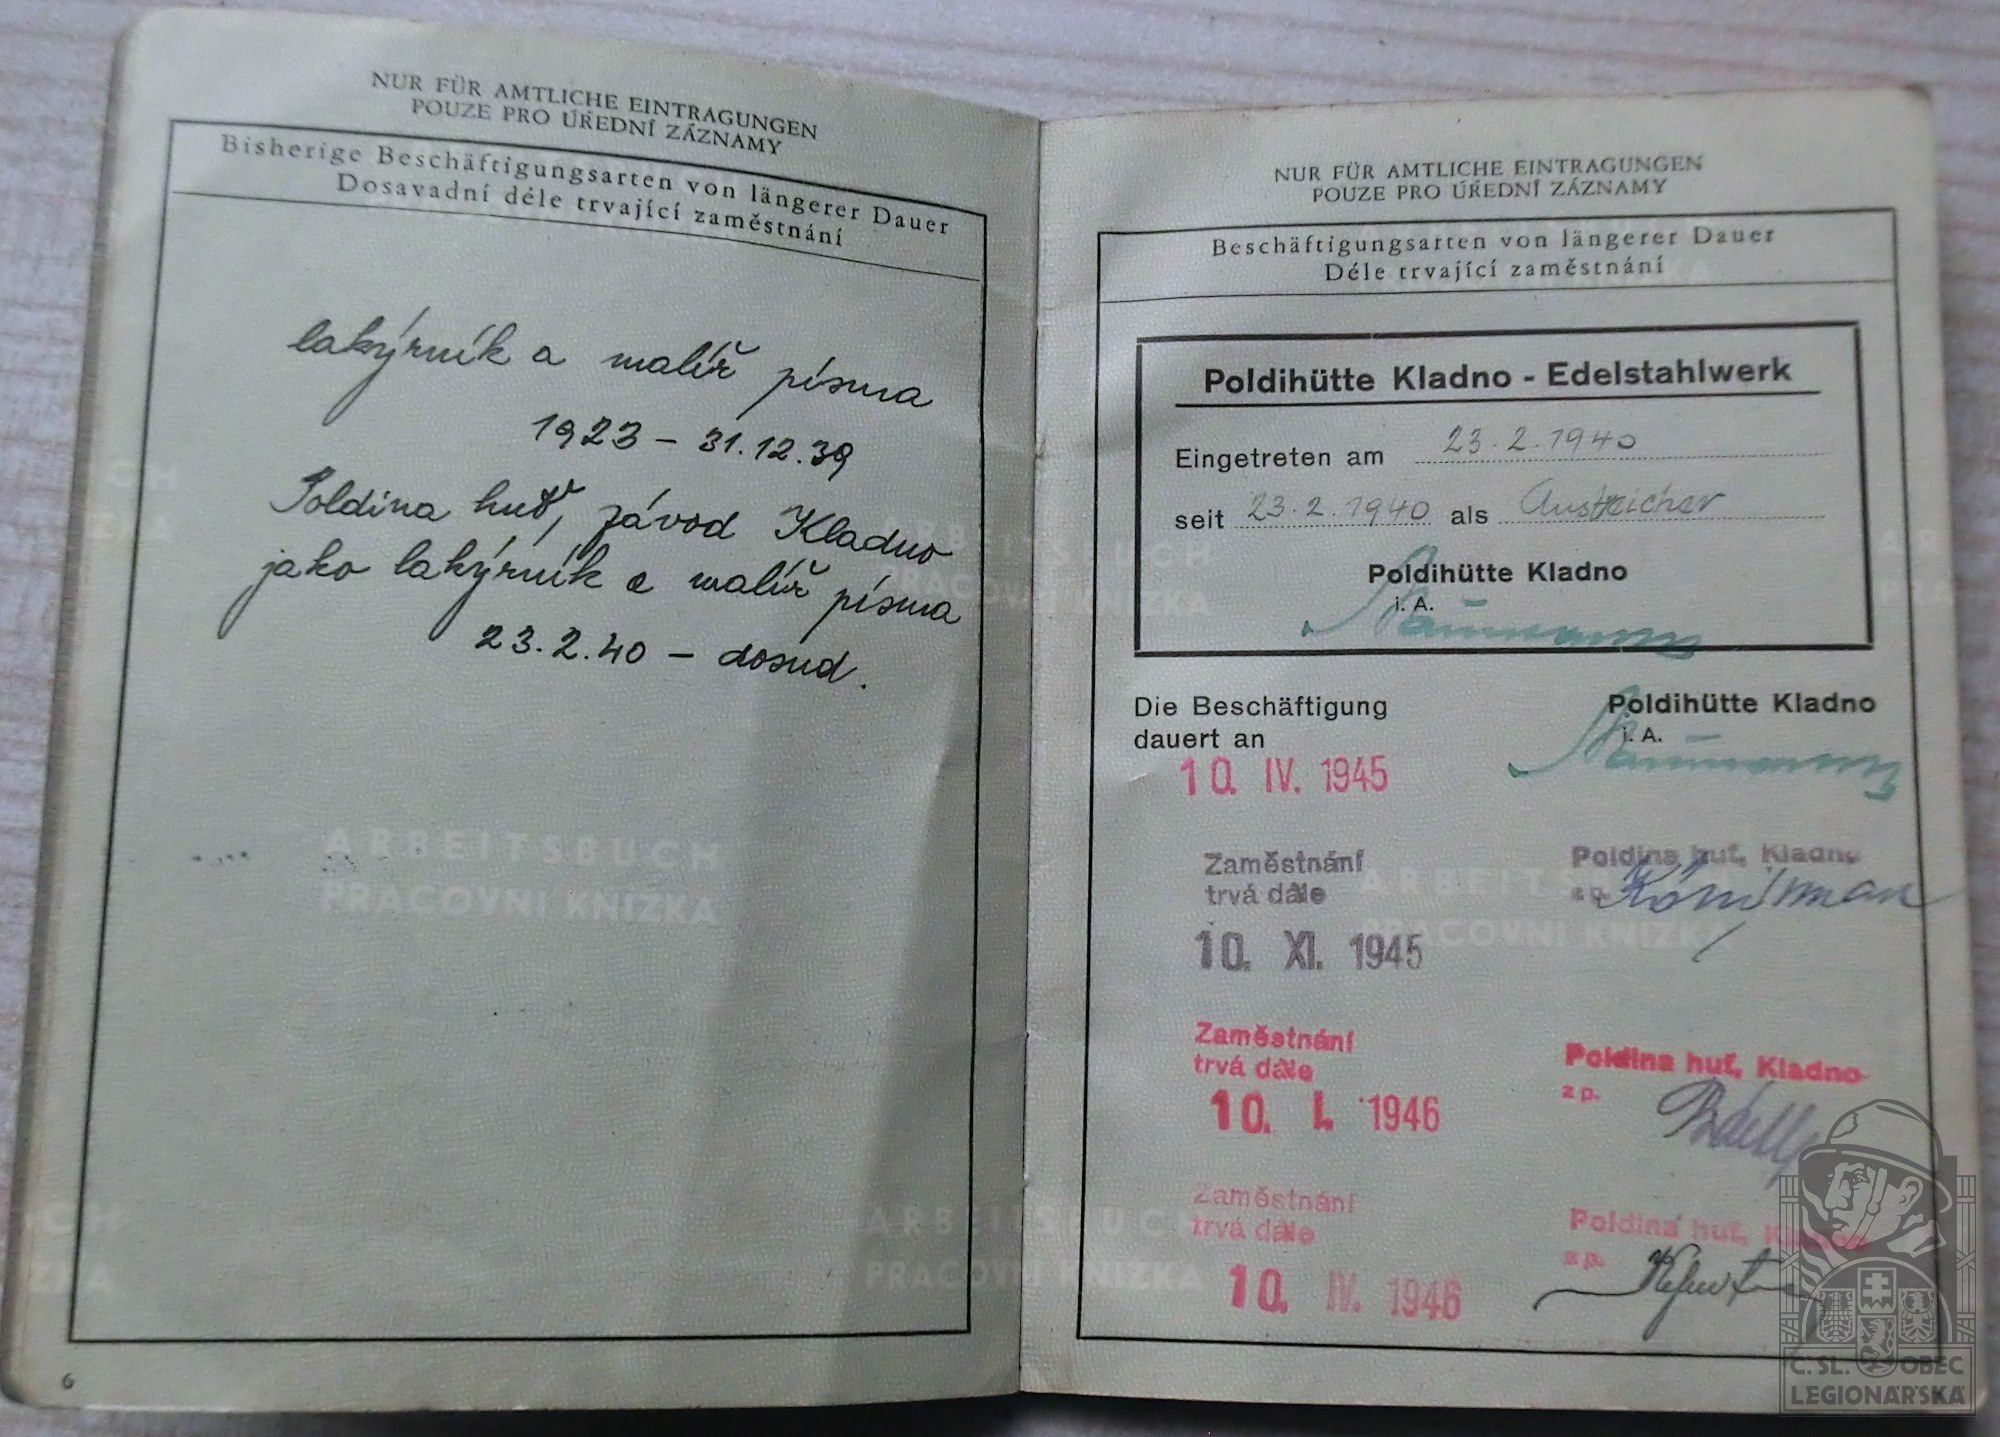 NUR FÜR AMTLICHE EINTRAGUNGEN
POUZE PRO ÚŘEDNÍ ZÁZNAMY
Bisherige Beschäftigungsarten von längerer Dauer
Dosavadní déle trvající zaměstnání
lakýrník a malíř písma
1923 – 31.12.39
Poldina huť, závod Kladno
jako lakýrník a malíř písma
23.2.40 – dosud.
ARBEITSBUCH
PRACOVNI KNIŽKA
6
NUR FÜR AMTLICHE EINTRAGUNGEN
POUZE PRO ÚŘEDNÍ ZÁZNAMY
Beschäftigungsarten von längerer Dauer
Déle trvající zaměstnání
Poldihütte Kladno - Edelstahlwerk
Eingetreten am 23.2.1940
seit 23.2.1940 als Anstreicher
Poldihütte Kladno
i. A.
Die Beschäftigung
dauert an
10. IV. 1945
Poldihütte Kladno
i. A.
Zaměstnání
trvá dále
10. XI. 1945
Poldina huť, Kladno
z p.
Zaměstnání
trvá dále
10. I. 1946
Poldina huť, Kladno
z p.
Zaměstnání
trvá dále
10. IV. 1946
Poldina huť, Kladno
z p.
ARBEITSBUCH
PRACOVNI KNIŽKA
Č. SL. OBEC
LEGIONÁŘSKÁ